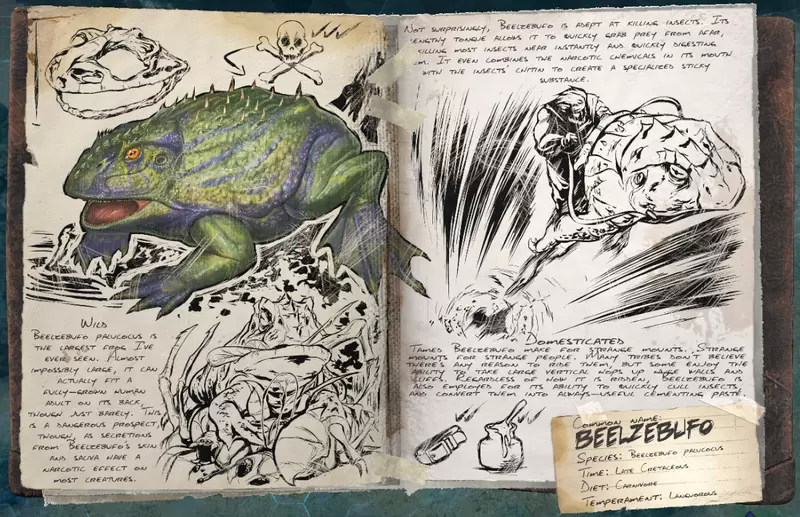 Wild
Beelzebufo palucocus is
the largest frog I've
ever seen. Almost
impossibly large, it can
actually fit a
fully-grown human
adult on its back,
though just barely. This
is a dangerous prospect,
though, as secretions
from Beelzebufo's skin
and saliva have a
narcotic effect on
most creatures.
Not surprisingly, Beelzebufo is adept at killing insects. Its
lengthy tongue allows it to quickly grab prey from afar,
killing most insects near instantly and quickly digesting
em. It even combines the narcotic chemicals in its mouth
with the insects chitin to create a specialized sticky
substance.
Domesticated
Tamed Beelzebufo make for strange mounts. Strange
mounts for strange people. Many tribes don't believe
there's any reason to ride them, but some enjoy the
ability to take large vertical hops up walls and
cliffs. Regardless of how it is ridden, Beelzebufo is
also employed for its ability to quickly cull insects,
and convert them into always-useful cementing paste.
Common name:
BEELZEBUFO
Species: Beelzebufo palucocus
Time: Late Cretaceous
Diet: Carnivore
Temperament: Languorous